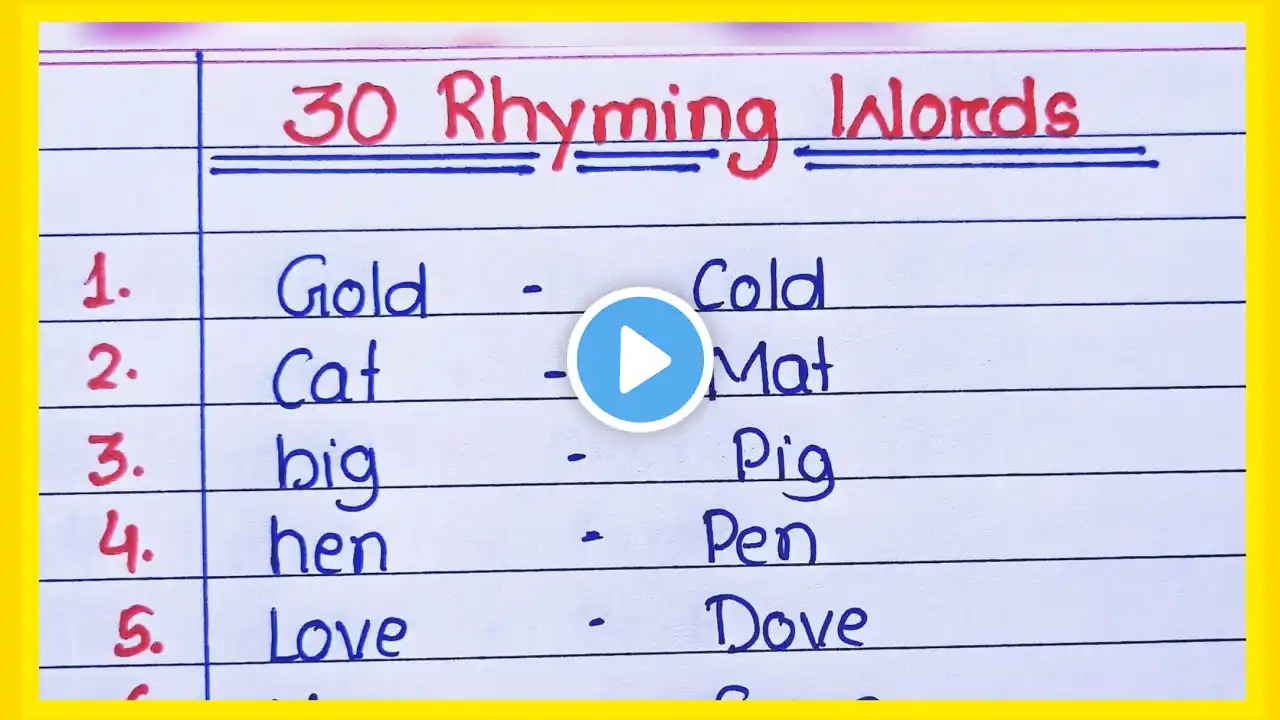 30 Rhyming Words
1. Gold - Cold
2. Cat - Mat
3. big - Pig
4. hen - Pen
5. Love - Dove